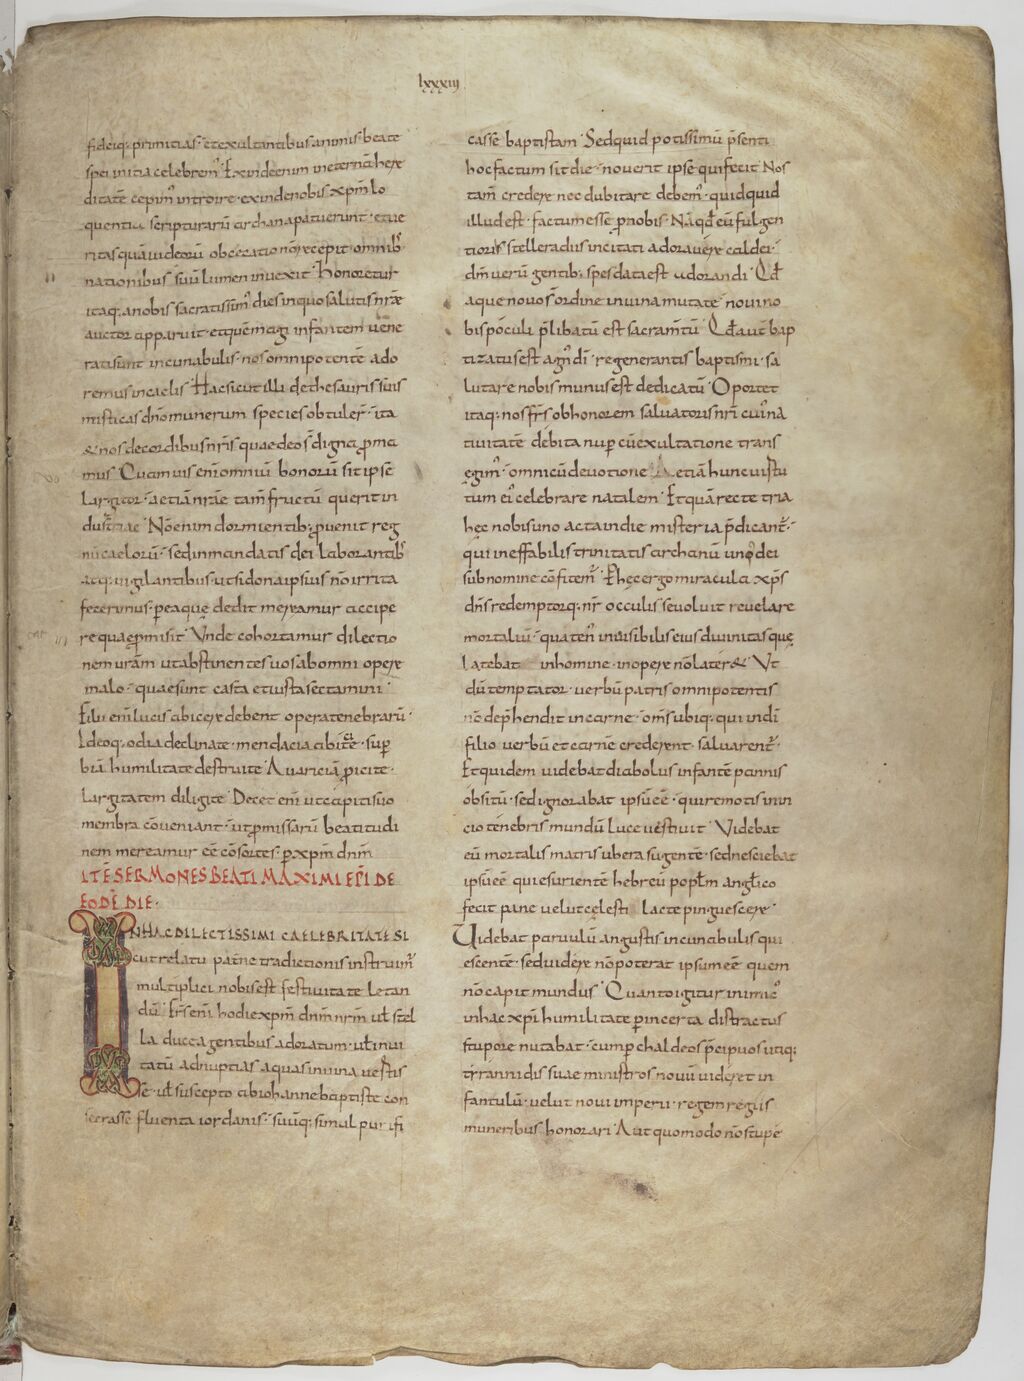 lxxxiij
fideiq; primitias· et exultantibus animis· beate
spei initia celebrem᾽ Exindeenim ineternā here
ditatē cepim᾽ introire· exindenobis xp̄m lo
quentia scripturarū archana patuerunt· et ue
ritas quā iudeorū obcecatio nōrecepit· omnib;
nationibus suū lumen inuexit· Honoretur
itaq; anobis sacratissim᾽ dies inquo salutis nr̄ae
auctor apparuit· et quēmagi infantem uene
ratisunt incunabulis· nos omnipotentē ado
remus incaelis Hac sicut illi dethesauris suis
misticas dn̄o munerum species obtuler̄· ita
& nos decordibus nr̄is quae deo s̄ digna prōma
mus Quamuis enīomniū bonorū sit ipse
largitor· aetiā nr̄ae tam̄ fructū querit in
dustriae· Nōenim dormientib; puenit reg
nū caelorū· sed in mandatis dei laborantib;
atq; uigilantibus· ut si dona ipsius nō irrita
fecerimus· pea quę dedit mereamur accipe
re quae promisit Unde cohortamur dilectio
nem uram̄ ut abstinentes uos abomni opere
malo· quae sunt casta et iusta sectamini
Filii enī lucis abicere debent opera tenebrarū·
Ideoq; odia declinate· mendacia abicite· sup
biā humilitate destruite Auariciā proicite·
Largitatem diligite Decet enī ut capiti suo
membra cōueniant· ut promissarū beatitudi
nem mereamur eē cōsortes· p xp̄m dn̄m
ITĒ SERMONES BEATI MAXIMI EP̄I DE
EODĒ DIE·
IN HAC DILECTISSIMI CAELEBRITATE SI
cut relatu patnę traditionis instruim᾽
multiplici nobis est festiuitate letan
dū· Fr̄s enī hodie xp̄m dn̄m nr̄m ul stel
la ducea gentibus adoratum· ul inui
tatū ad nuptias aquas in uina uestis
se· ul suscepto abiohanne baptiste con
secrasse fluenta iordanis· suūq; simul purifi
casse baptistam Sed quid potissimū p̄senti
hoc factum sit die· nouerit ipse qui fecit Nos
tam̄ credere nec dubitare debem᾽· quidquid
illud est· factum esse p nobis· Nā qđ eū fulgen
tioris stelle radiis incitati adorauere caldei·
dm̄ uerū gentib; spes data est adorandi Qđ
aque nouo s̄ ordine in uina mutate· noui no
bis poculi plibatū est sacram̄tū Qđ aut bap
tizatus est agn᾽ dī· regenerantis baptismi· sa
lutare nobis munus est dedicatū Oportet
itaq; nos fr̄s ob honorem saluatoris nr̄i cui᾽ na
tiuitatē debita nup cū exultatione trans
egim᾽· omni cū deuotione etiā hunc uistu
tum ei᾽ celebrare natalem· Et quā recte tria
hęc nobis uno acta in die misteria p̄dicant᾽·
qui ineffabilis trinitatis archanū uno dei
sub nomine cōfitem᾽ P hęc ergo miracula xp̄s
dn̄s redemptorq; nr̄ occulis se uoluit reuelare
mortaliū· quaten᾽ inuisibilis eius diuinitas quę
latebat in homine· in opere nō later& Ut
dū temptator· uerbū patris omnipotentis
nō dep̄hendit in carne· om̄s ubiq; qui in dī
filio uerbū et carnē crederent· saluarent᾽·
Et quidem uidebat diabolus infantē pannis
obsitū· sed ignorabat ipsū eē· qui remotis in ini
cio tenebris mundū luce uestiuit Videbat
eū mortalis matris ubera sugentē· sed nesciebat
ipsū eē qui esurientē hebreū popl̄m anglico
fecit pane uelut cęlesti lacte pinguescere·
Uidebat paruulū angustis in cunabulis qui
escentē· sed uidere nō poterat ipsum eē quem
nō capit mundus Quanto igitur inimic᾽
in hac xp̄i humilitate p incerta distractus
stupore nutabat· cum p chaldeos p̄cipuos utiq;
tirannidis suae ministros nouū uideret in
fantulū· uelut noui imperii· regem regiis
muneribus honorari Aut quomodo nō stupe